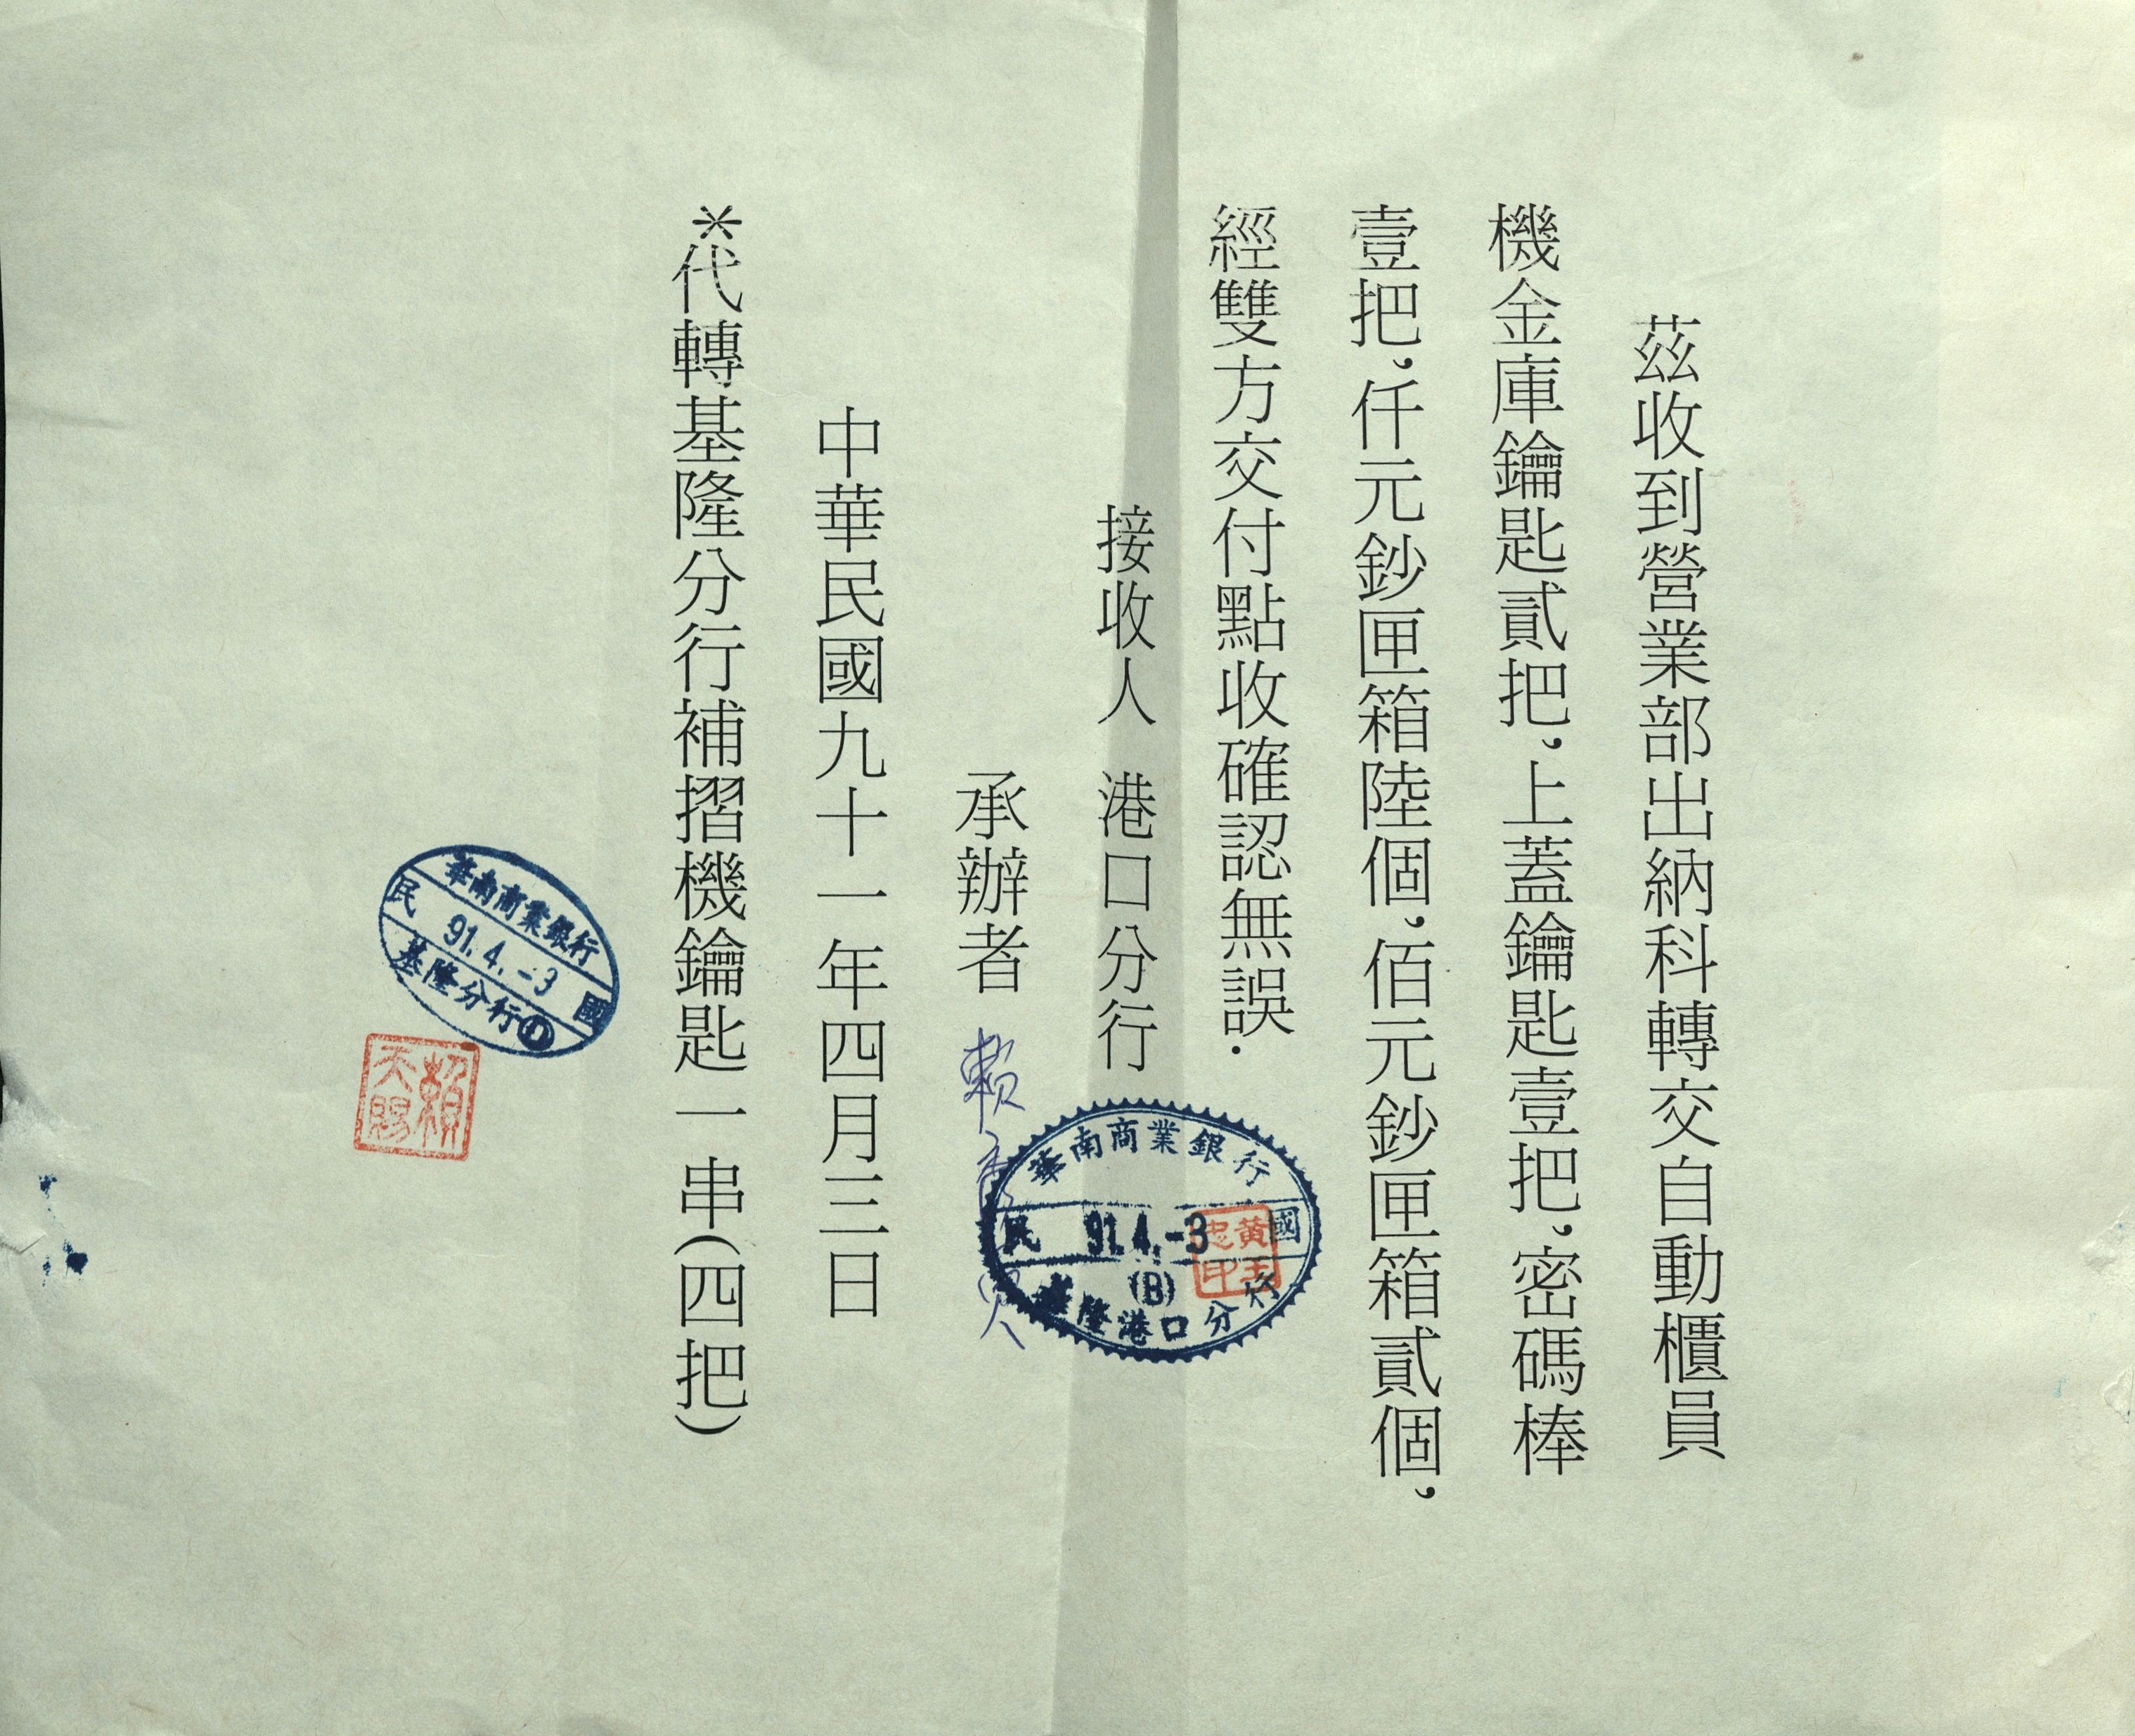 茲收到營業部出納科轉交自動櫃員
機金庫鑰匙貳把，上蓋鑰匙壹把，密碼棒
壹把，仟元鈔匣箱陸個，佰元鈔匣箱貳個，
經雙方交付點收確認無誤．
接收人 港口分行
華南商業銀行
民 91.4.-3 國
(B)
基隆港口分行
黃玉
忠印
承辦者 賴
中華民國九十一年四月三日
＊代轉基隆分行補摺機鑰匙一串(四把)
華南商業銀行
民 91.4.-3 國
基隆分行①
賴
天賜